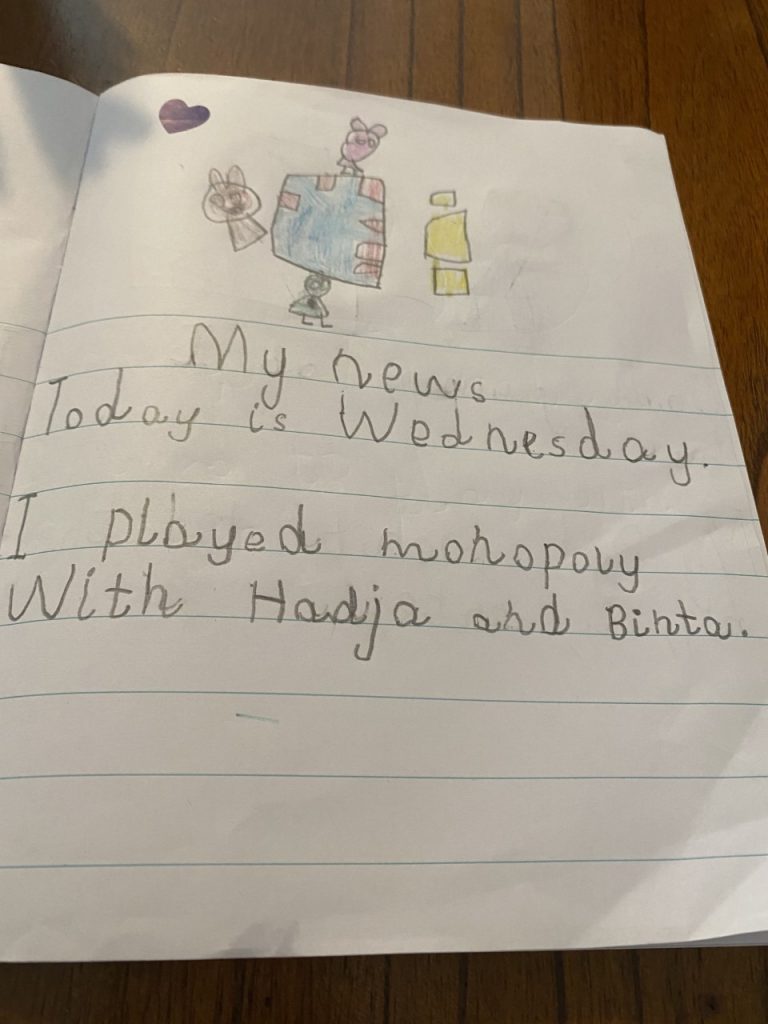 My news
Today is Wednesday.
I played monopoly
With Hadja and Binta.